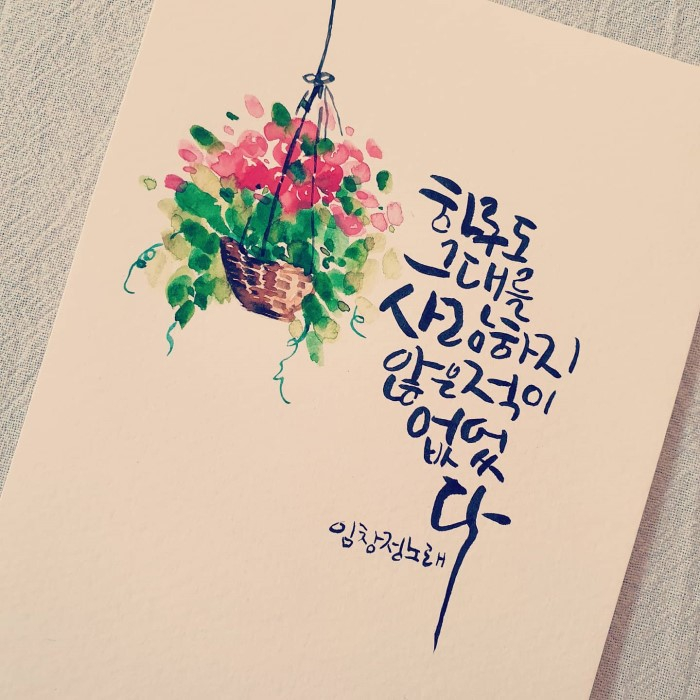 하루도
그대를
사랑하지
않은적이
없었
다
임창정노래